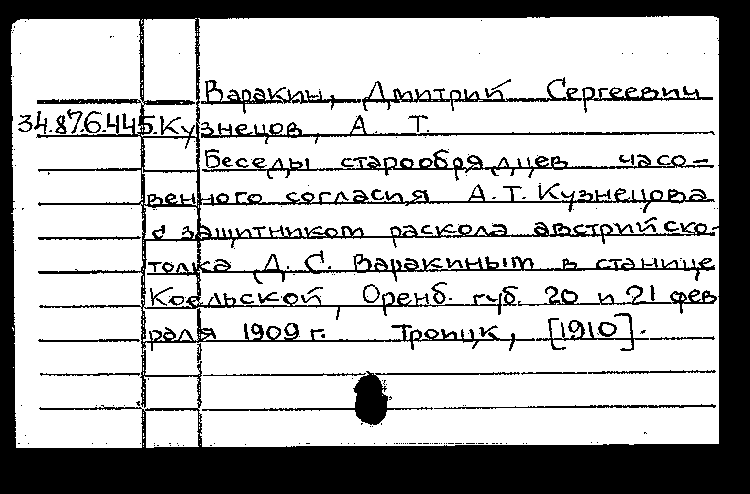 Варакин, Дмитрий Сергеевич
34.876.445. Кузнецов, А. Т.
Беседы старообрядцев часо-
венного согласия А. Т. Кузнецова
с защитником раскола австрийско-
толка Д. С. Варакиным в станице
Коельской, Оренб. губ. 20 и 21 фев
раля 1909 г. Троицк, [1910].